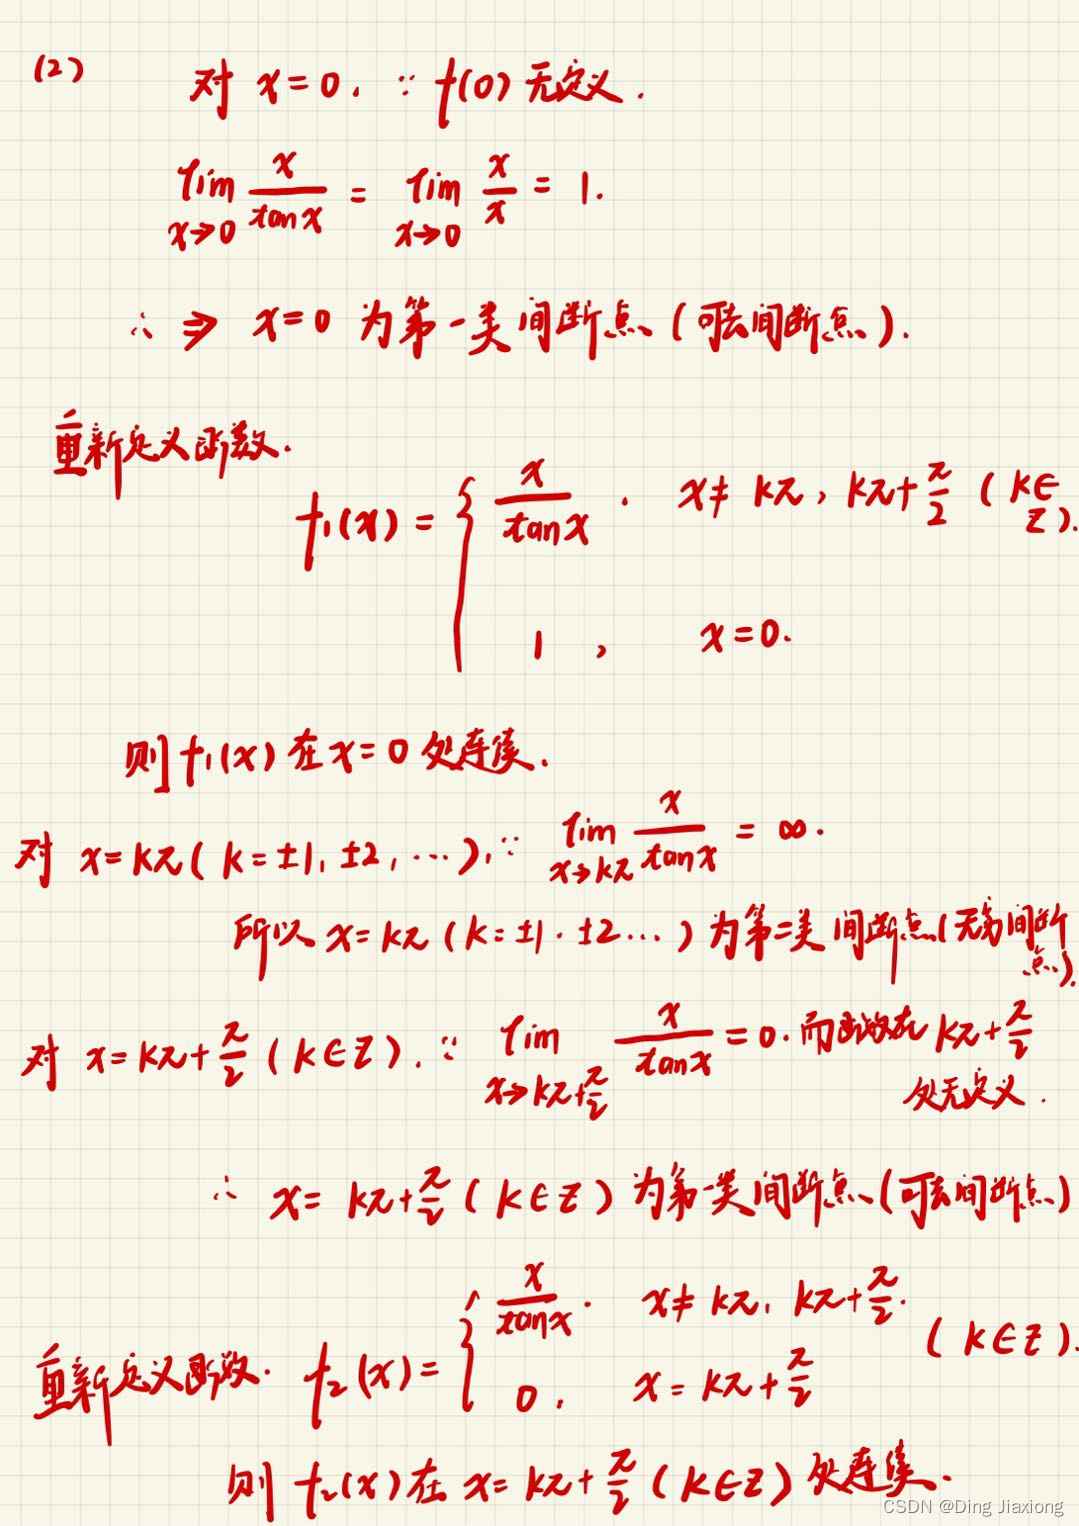 (2) 对 x=0. ∵ f(0) 无定义.
lim x→0 x/tanx = lim x→0 x/x = 1.
∴ ⇒ x=0 为第一类间断点 (可去间断点).
重新定义函数.
f₁(x) = { x/tanx . x≠kπ, kπ+π/2 (k∈Z).
1 , x=0.
则 f₁(x) 在 x=0 处连续.
对 x=kπ (k=±1, ±2, ···), ∵ lim x→kπ x/tanx = ∞.
所以 x=kπ (k=±1 · ±2 ···) 为第二类间断点 (无穷间断点).
对 x=kπ+π/2 (k∈Z). ∵ lim x→kπ+π/2 x/tanx = 0. 而函数在 kπ+π/2 处无定义.
∴ x= kπ+π/2 (k∈Z) 为第一类间断点 (可去间断点)
重新定义函数. f₂(x)= { x/tanx . x≠kπ, kπ+π/2. (k∈Z).
0 , x=kπ+π/2
则 f₂(x) 在 x=kπ+π/2 (k∈Z) 处连续.
CSDN @Ding Jiaxiong